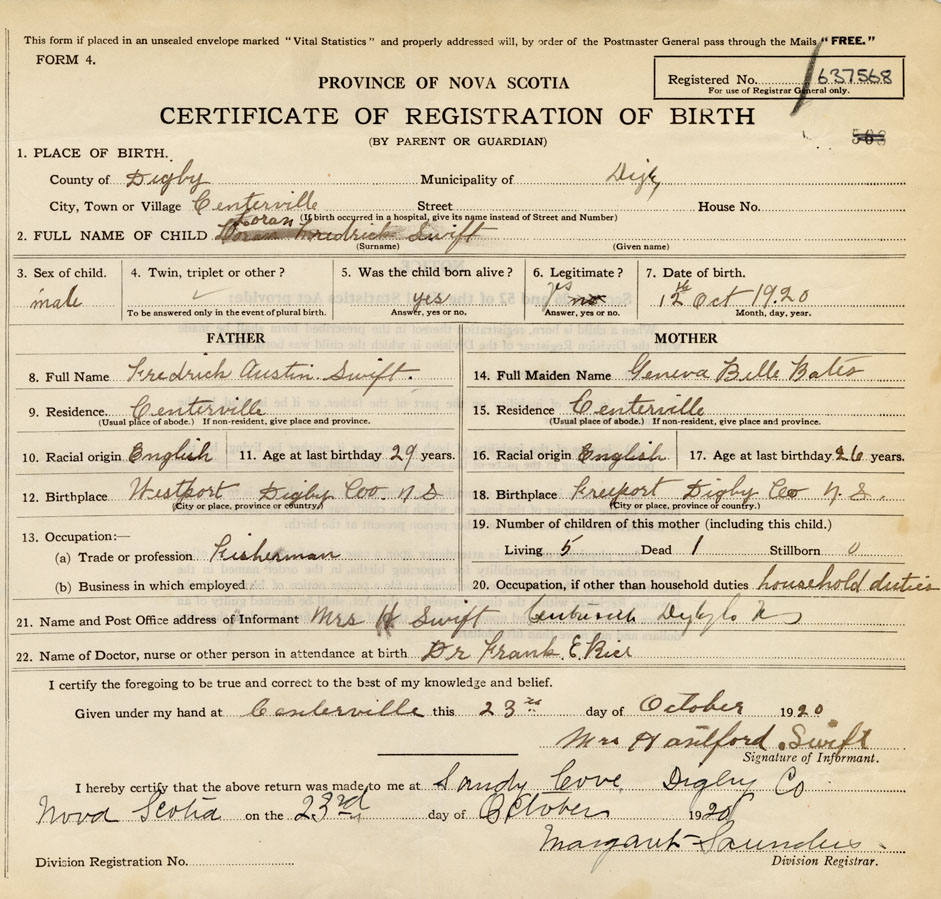 This form if placed in an unsealed envelope marked "Vital Statistics" and properly addressed will, by order of the Postmaster General pass through the Mails "FREE."
FORM 4.
Registered No. 637568
For use of Registrar General only.
PROVINCE OF NOVA SCOTIA
CERTIFICATE OF REGISTRATION OF BIRTH
(BY PARENT OR GUARDIAN)
503
1. PLACE OF BIRTH.
County of Digby Municipality of Digby
City, Town or Village Centerville Street House No.
(If birth occurred in a hospital, give its name instead of Street and Number)
Loran
2. FULL NAME OF CHILD Fredrick Swift
(Surname) (Given name)
3. Sex of child. 4. Twin, triplet or other? 5. Was the child born alive? 6. Legitimate? 7. Date of birth.
male yes yes no 12th Oct 1920
To be answered only in the event of plural birth. Answer, yes or no. Answer, yes or no. Month, day, year.
FATHER MOTHER
8. Full Name Fredrick Austin Swift. 14. Full Maiden Name Geneva Belle Bates
9. Residence Centerville 15. Residence Centerville
(Usual place of abode.) If non-resident, give place and province. (Usual place of abode.) If non-resident, give place and province.
10. Racial origin English 11. Age at last birthday 29 years. 16. Racial origin English 17. Age at last birthday 26 years.
12. Birthplace Westport Digby Coo. N S 18. Birthplace Freeport Digby Co N S.
(City or place, province or country.) (City or place, province or country.)
13. Occupation:— 19. Number of children of this mother (including this child.)
(a) Trade or profession Fisherman Living 5 Dead 1 Stillborn 0
(b) Business in which employed 20. Occupation, if other than household duties household duties
21. Name and Post Office address of Informant Mrs H Swift
22. Name of Doctor, nurse or other person in attendance at birth Dr Frank E. Rice
I certify the foregoing to be true and correct to the best of my knowledge and belief.
Given under my hand at Centerville this 23rd day of October 1920
Mrs Hantford Swift
Signature of Informant.
I hereby certify that the above return was made to me at Sandy Cove Digby Co
Nova Scotia on the 23rd day of October 1920
Margaret Saunders
Division Registration No. Division Registrar.